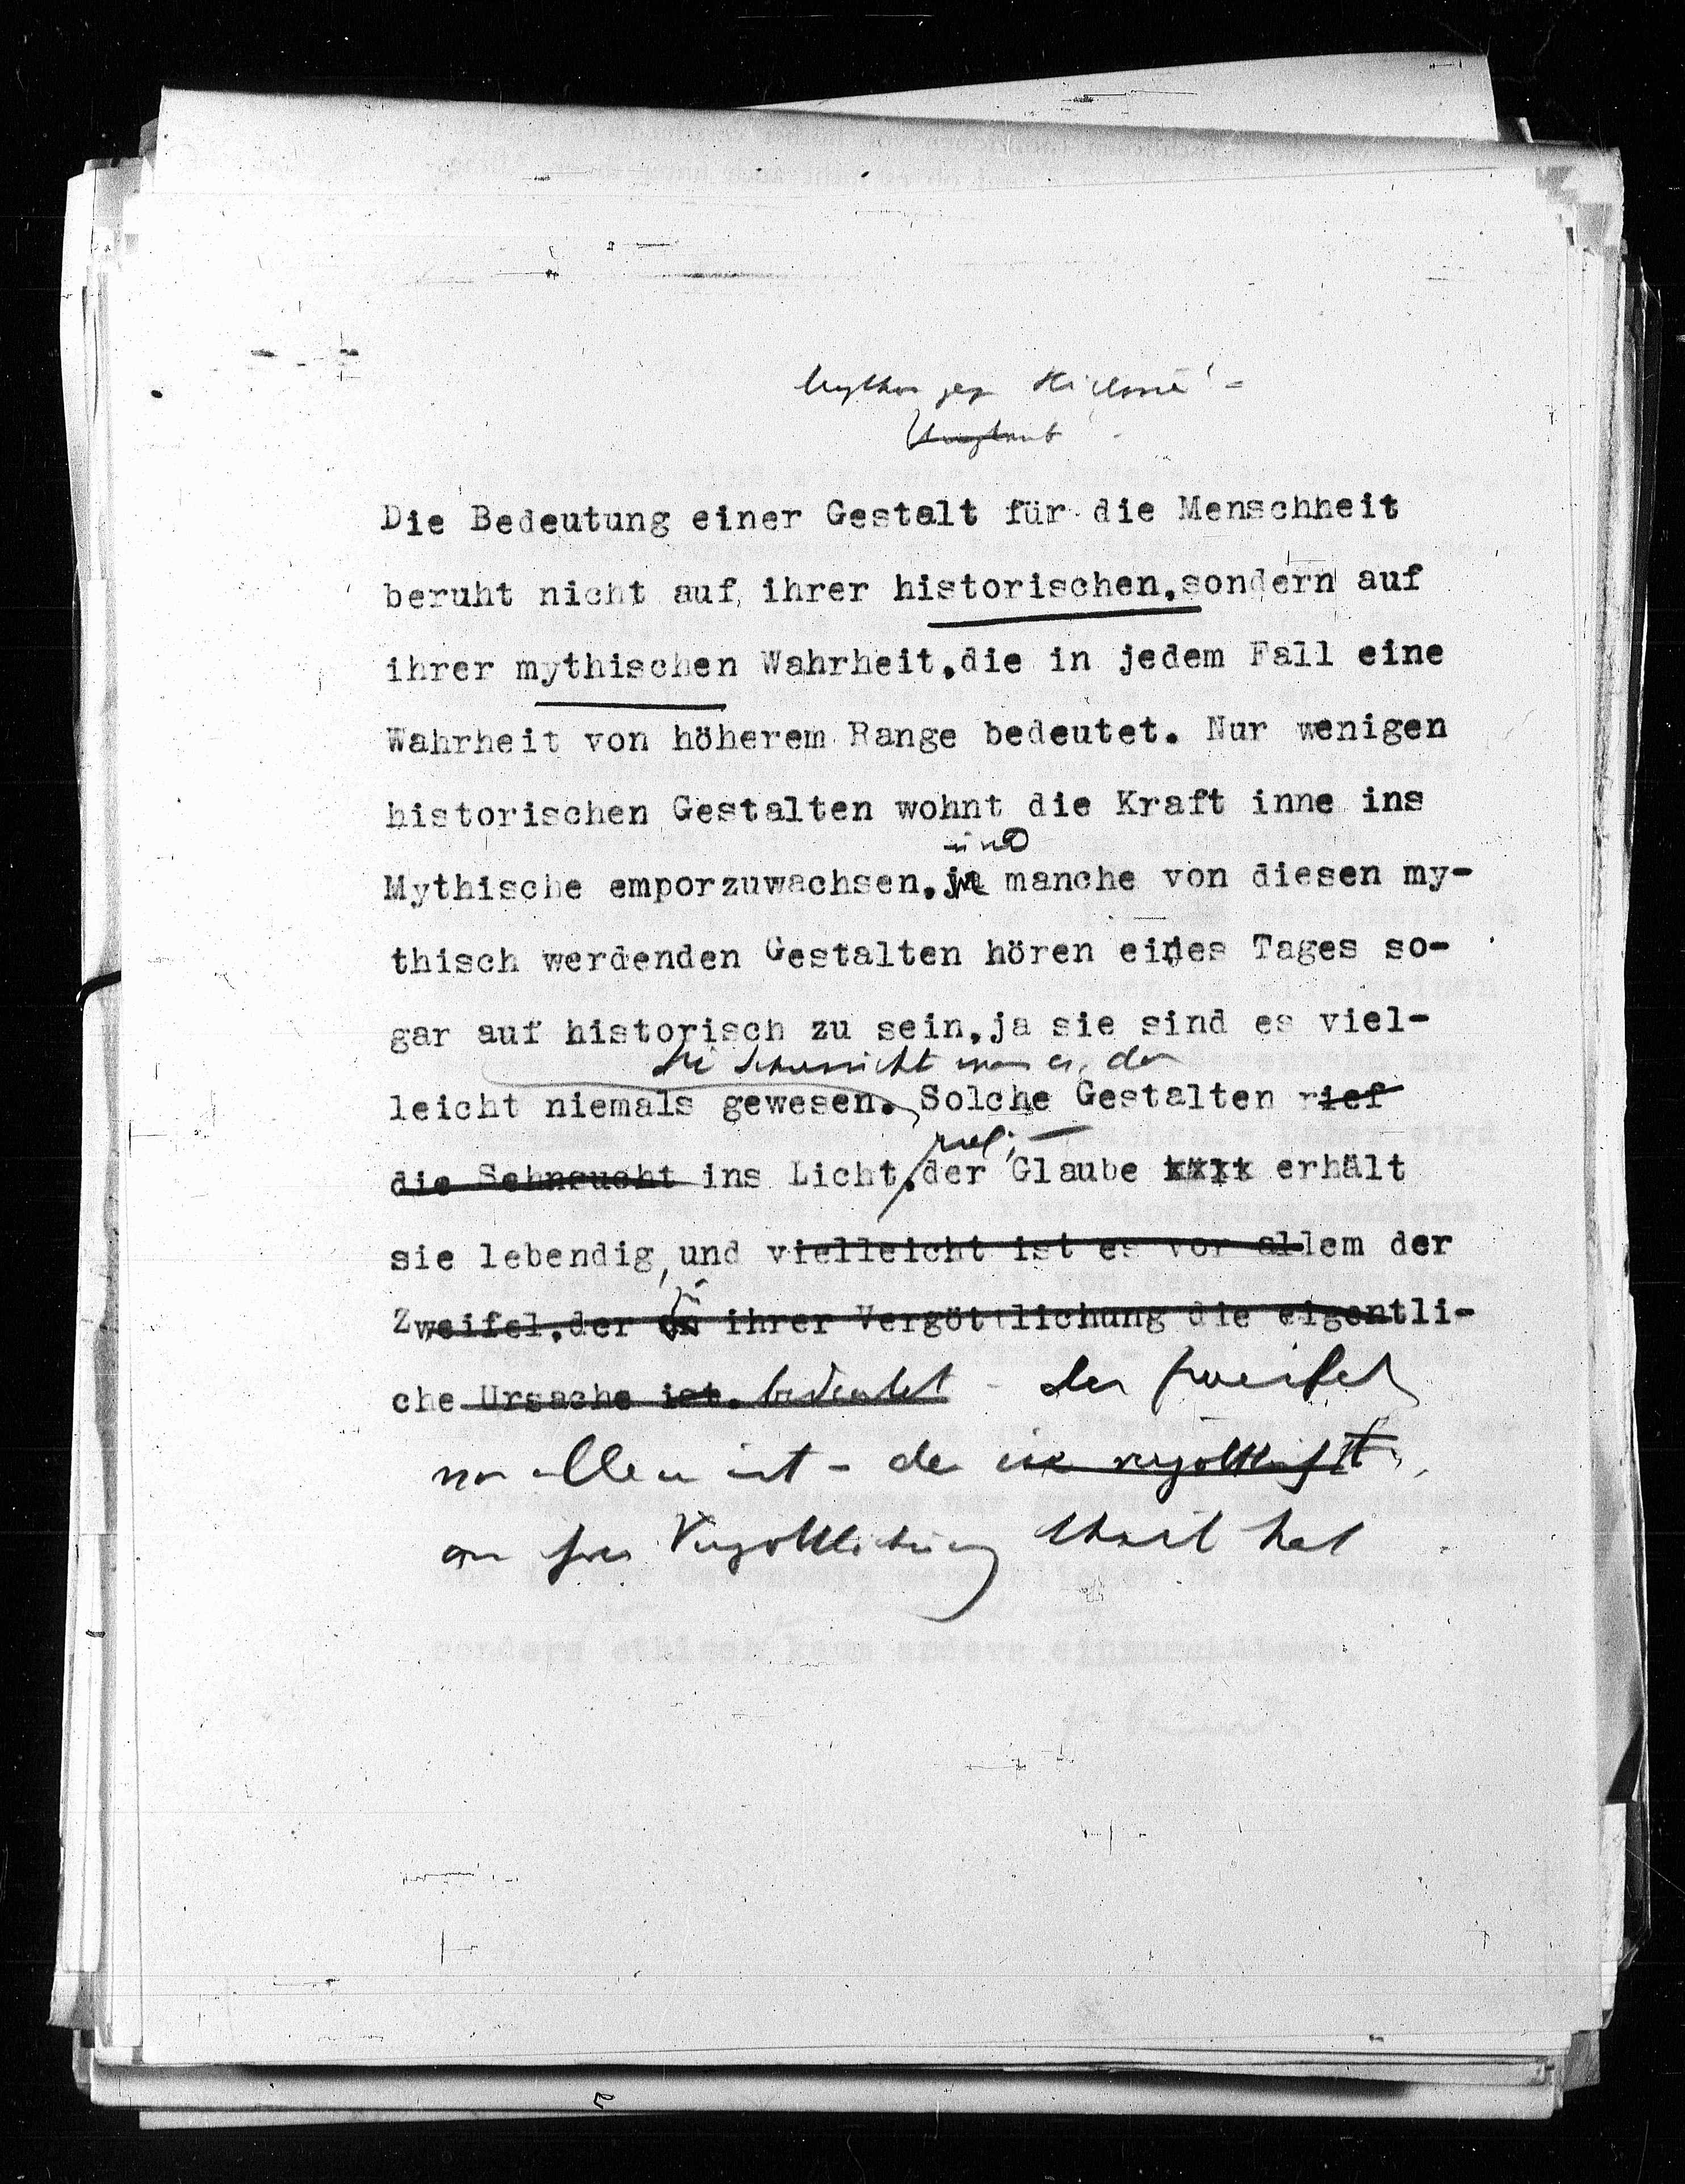 Mythos geg Historie -
Die Bedeutung einer Gestalt für die Menschheit
beruht nicht auf ihrer historischen,sondern auf
ihrer mythischen Wahrheit,die in jedem Fall eine
Wahrheit von höherem Range bedeutet. Nur wenigen
historischen Gestalten wohnt die Kraft inne ins
und
Mythische emporzuwachsen,ja manche von diesen my-
thisch werdenden Gestalten hören eines Tages so-
gar auf historisch zu sein,ja sie sind es viel-
die Sehnsucht war es, der
leicht niemals gewesen. Solche Gestalten rief
rief,
die Sehnsucht ins Licht,der Glaube erhält
sie lebendig,und vielleicht ist es vor allem der
Zweifel,der an ihrer Vergöttlichung die eigentli-
che Ursache ist. bedeutet - der Zweifel
vor allem ist - der sie vergöttlicht
an ihrer Vergöttlichung theil hat